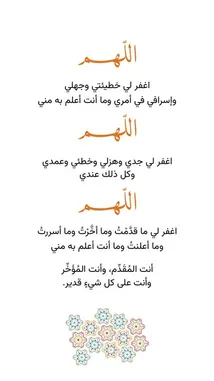 اللهم
اغفر لي خطيئتي وجهلي
وإسرافي في أمري وما أنت أعلم به مني
اللهم
اغفر لي جدي وهزلي وخطئي وعمدي
وكل ذلك عندي
اللهم
اغفر لي ما قدَّمْتُ وما أخَّرْتُ وما أسررتُ
وما أعلنتُ وما أنت أعلم به مني
أنت المُقَدِّم، وأنت المُؤَخِّر
وأنت على كل شيءٍ قدير.